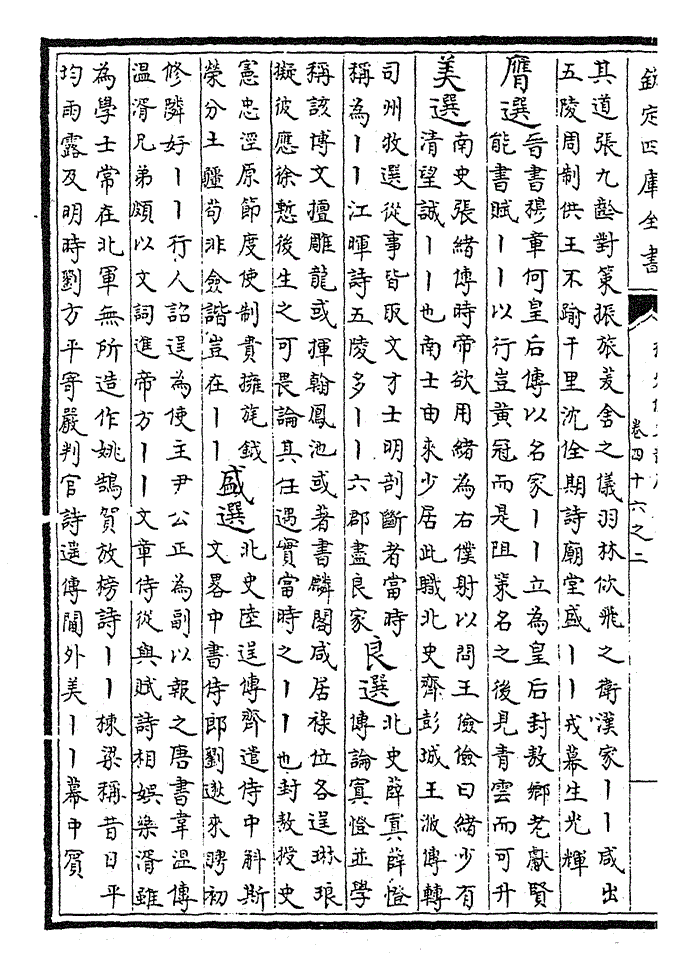 欽定四庫全書
卷四十六之二
其道張九齡對策振旅茇舍之儀羽林佽飛之衛漢家丨丨咸出
五陵周制供王不踰千里沈佺期詩廟堂盛丨丨戎幕生光輝
膺選
晉書穆章何皇后傳以名家丨丨立為皇后封敖鄉老獻賢
能書賦丨丨以行豈黃冠而是阻策名之後見青雲而可升
美選
南史張緒傳時帝欲用緒為右僕射以問王儉儉曰緒少有
清望誠丨丨也南士由來少居此職北史齊彭城王浟傳轉
司州牧選從事皆取文才士明剖斷者當時
稱為丨丨江暉詩五陵多丨丨六郡盡良家
良選
北史薛寘薛憕
傳論寘憕並學
稱該博文擅雕龍或揮翰鳳池或著書麟閣咸居祿位各逞琳琅
擬彼應徐慙後生之可畏論其任遇實當時之丨丨也封敖授史
憲忠涇原節度使制貴擁旄鉞
榮分土疆苟非僉諧豈在丨丨
盛選
北史陸逞傳齊遣侍中斛斯
文畧中書侍郎劉逖來聘初
修隣好丨丨行人詔逞為使主尹公正為副以報之唐書韋溫傳
溫湑兄弟頗以文詞進帝方丨丨文章侍從與賦詩相娛樂湑雖
為學士常在北軍無所造作姚鵠賀放榜詩丨丨棟梁稱昔日平
均雨露及明時劉方平寄嚴判官詩選傳閫外美丨丨幕中賓